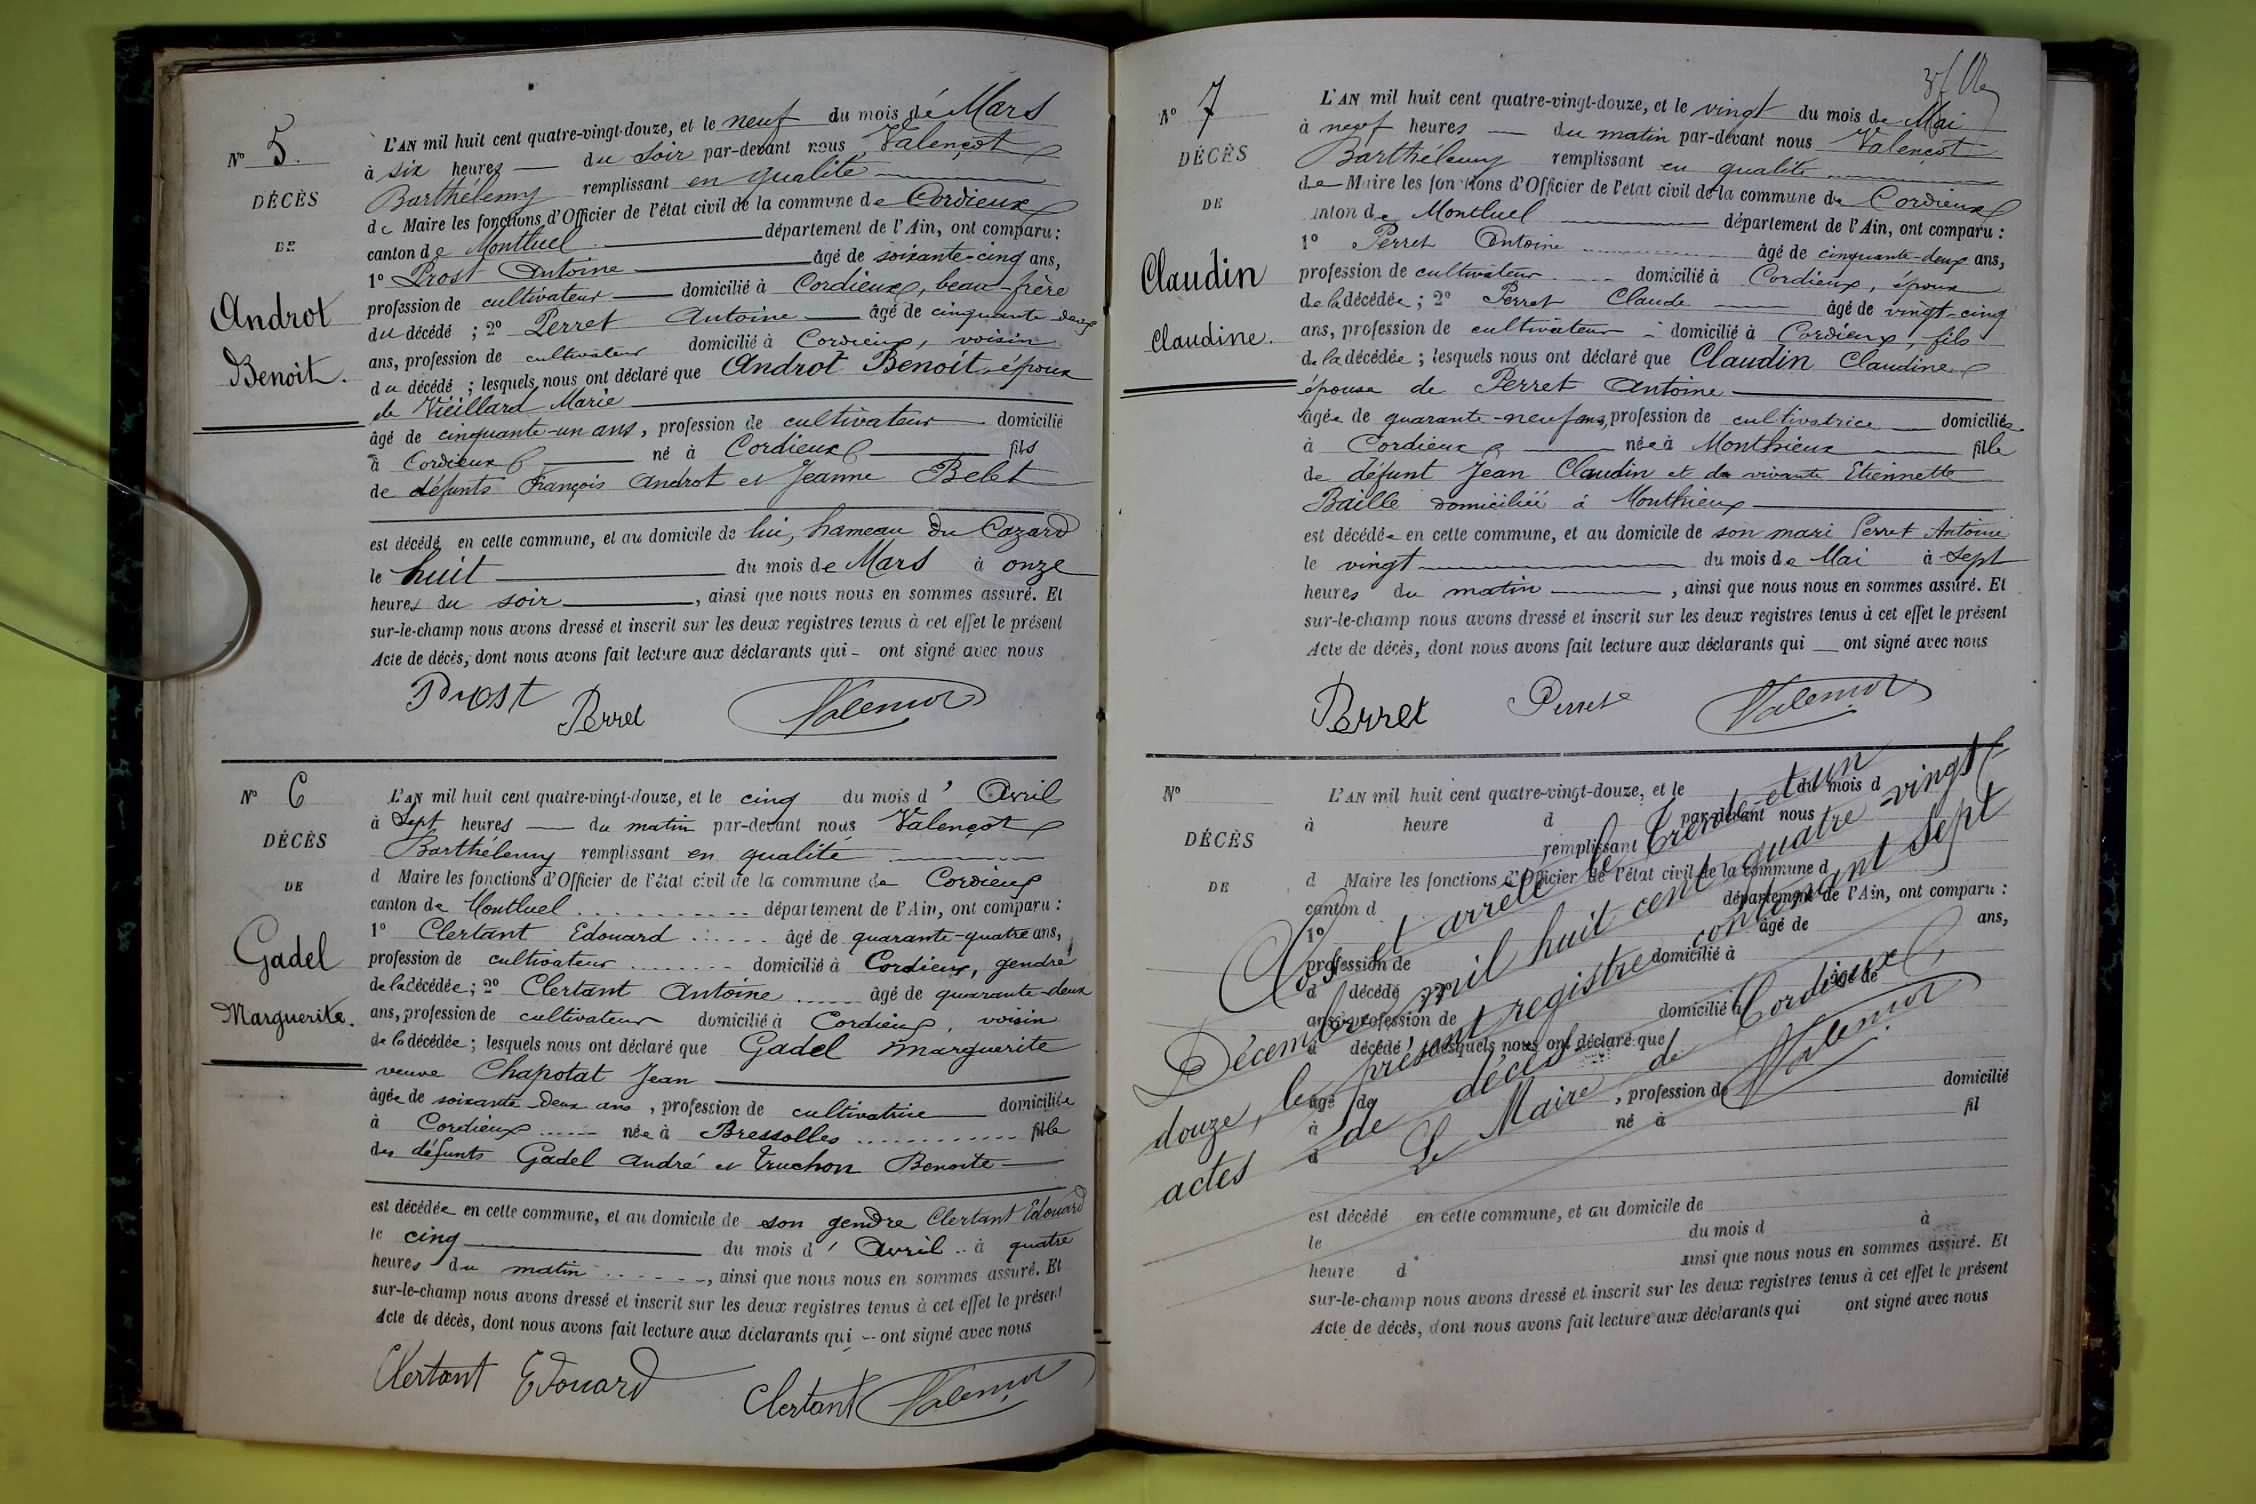 N° 5.
DÉCÈS
DE
Androt
Benoit.
L'AN mil huit cent quatre-vingt-douze, et le neuf du mois de Mars
à six heures du soir par-devant nous Valençot
Barthélemy remplissant en qualité
de Maire les fonctions d'Officier de l'état civil de la commune de Cordieux
canton de Montluel département de l'Ain, ont comparu :
1° Prost Antoine âgé de soixante-cinq ans,
profession de cultivateur domicilié à Cordieux, beau-frère
du décédé ; 2° Perret Antoine âgé de cinquante-deux
ans, profession de cultivateur domicilié à Cordieux, voisin
du décédé ; lesquels nous ont déclaré que Androt Benoit, époux
de Vieillard Marie
âgé de cinquante-un ans, profession de cultivateur domicilié
à Cordieux né à Cordieux fils
de défunts François Androt et Jeanne Belet
est décédé en cette commune, et au domicile de lui, hameau du Cazard
le huit du mois de Mars à onze
heures du soir, ainsi que nous nous en sommes assuré. Et
sur-le-champ nous avons dressé et inscrit sur les deux registres tenus à cet effet le présent
Acte de décès, dont nous avons fait lecture aux déclarants qui - ont signé avec nous
Prost Perret Valençot
N° 6
DÉCÈS
DE
Gadel
Marguerite.
L'AN mil huit cent quatre-vingt-douze, et le cinq du mois d'Avril
à Sept heures du matin par-devant nous Valençot
Barthélemy remplissant en qualité
d Maire les fonctions d'Officier de l'état civil de la commune de Cordieux
canton de Montluel département de l'Ain, ont comparu :
1° Clertant Edouard âgé de quarante-quatre ans,
profession de cultivateur domicilié à Cordieux, gendre
de la décédée ; 2° Clertant Antoine âgé de quarante-deux
ans, profession de cultivateur domicilié à Cordieux, voisin
de la décédée ; lesquels nous ont déclaré que Gadel Marguerite
veuve Chapotat Jean
âgée de soixante-deux ans, profession de cultivatrice domiciliée
à Cordieux née à Bressolles fille
des défunts Gadel André et Truchon Benoite
est décédée en cette commune, et au domicile de son gendre Clertant Edouard
le cinq du mois d'Avril à quatre
heures du matin, ainsi que nous nous en sommes assuré. Et
sur-le-champ nous avons dressé et inscrit sur les deux registres tenus à cet effet le présent
Acte de décès, dont nous avons fait lecture aux déclarants qui - ont signé avec nous
Clertant Edouard Clertant Valençot
N° 7
DÉCÈS
DE
Claudin
Claudine.
L'AN mil huit cent quatre-vingt-douze, et le vingt du mois de Mai
à neuf heures du matin par-devant nous Valençot
Barthélemy remplissant en qualité
de Maire les fonctions d'Officier de l'état civil de la commune de Cordieux
anton de Montluel département de l'Ain, ont comparu :
1° Perret Antoine âgé de cinquante-deux ans,
profession de cultivateur domicilié à Cordieux, époux
de la décédée ; 2° Perret Claude âgé de vingt-cinq
ans, profession de cultivateur domicilié à Cordieux, fils
de la décédée ; lesquels nous ont déclaré que Claudin Claudine
épouse de Perret Antoine
âgée de quarante-neuf ans, profession de cultivatrice domiciliée
à Cordieux née à Monthieux fille
de défunt Jean Claudin et de vivante Etiennette
Baille domiciliée à Monthieux
est décédée en cette commune, et au domicile de son mari Perret Antoine
le vingt du mois de Mai à sept
heures du matin, ainsi que nous nous en sommes assuré. Et
sur-le-champ nous avons dressé et inscrit sur les deux registres tenus à cet effet le présent
Acte de décès, dont nous avons fait lecture aux déclarants qui ont signé avec nous
Perret Perret Valençot
N°
DÉCÈS
DE
L'AN mil huit cent quatre-vingt-douze, et le du mois d
à heure d par-devant nous
remplissant
d Maire les fonctions d'Officier de l'état civil de la commune d
canton d département de l'Ain, ont comparu :
1° âgé de ans,
profession de domicilié à
d décédé ; 2° âgé de
ans, profession de domicilié à
d décédé ; lesquels nous ont déclaré que
âgé de , profession de domicilié
à né à fil
d
est décédé en cette commune, et au domicile de
le du mois d à
heure d ainsi que nous nous en sommes assuré. Et
sur-le-champ nous avons dressé et inscrit sur les deux registres tenus à cet effet le présent
Acte de décès, dont nous avons fait lecture aux déclarants qui ont signé avec nous
Clos et arrêté le trente-et-un
Décembre mil huit cent quatre-vingt-
douze, le présent registre contenant Sept
actes de décès
Le Maire de Cordieux,
Valençot